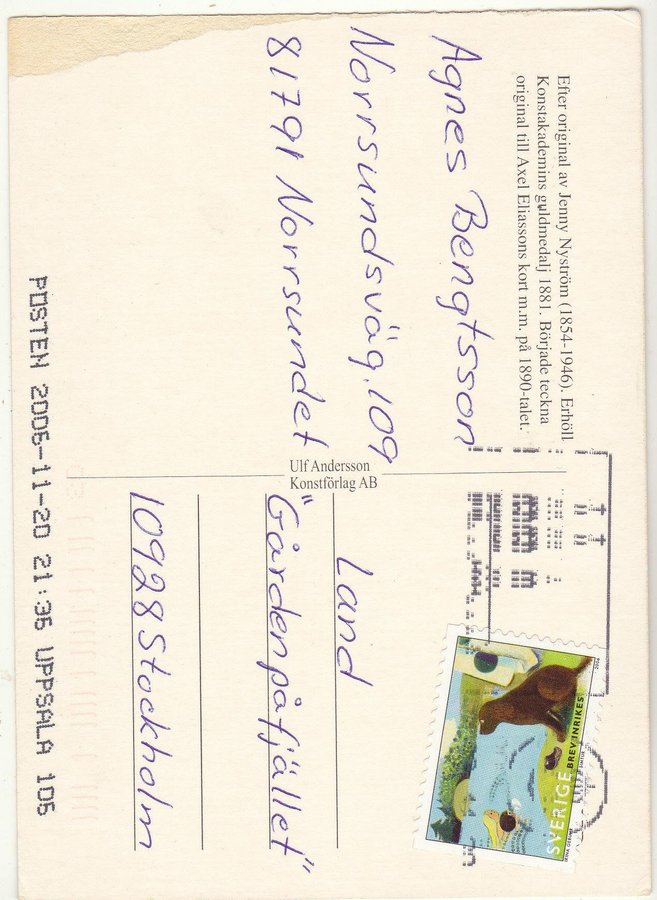 Efter original av Jenny Nyström (1854-1946). Erhöll
Konstakademins guldmedalj 1881. Började teckna
original till Axel Eliassons kort m.m. på 1890-talet.
Agnes Bengtsson
Norrsundsväg.109
81791 Norrsundet
Ulf Andersson
Konstförlag AB
SVERIGE BREV INRIKES
2006
Land
"Gården på fjället"
10928 Stockholm
POSTEN 2006-11-20 21:35 UPPSALA 105